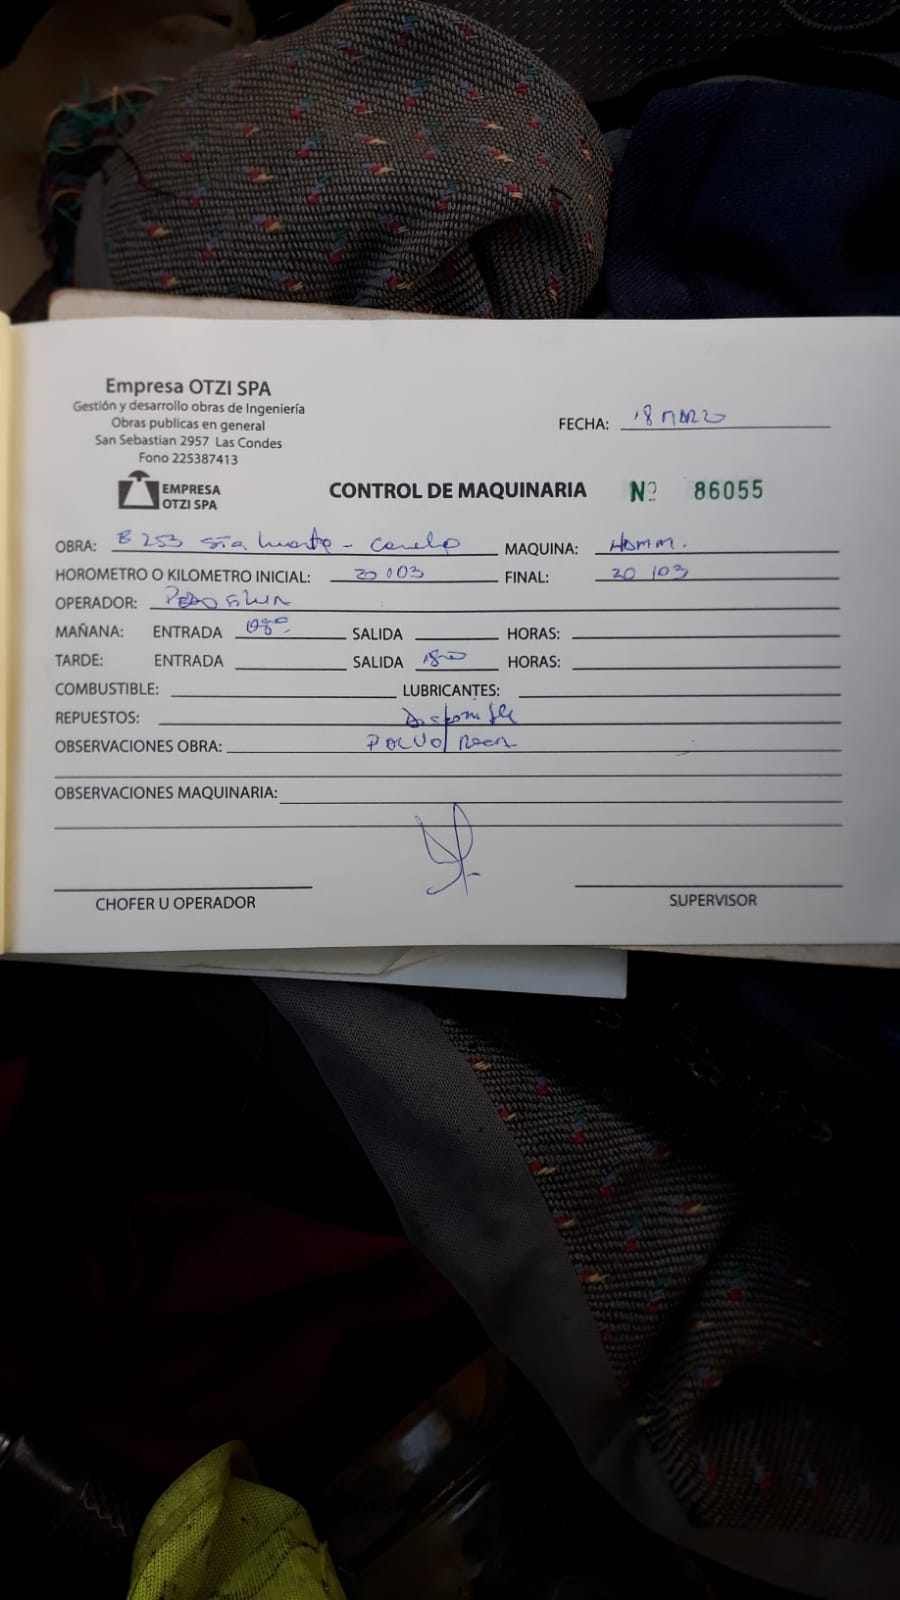 Empresa OTZI SPA
Gestión y desarrollo obras de Ingeniería
Obras publicas en general
San Sebastian 2957 Las Condes
Fono 225387413
FECHA: 18 MARZO
EMPRESA
OTZI SPA
CONTROL DE MAQUINARIA Nº 86055
OBRA: B 253 - MAQUINA:
HOROMETRO O KILOMETRO INICIAL: 20 003 FINAL: 20 103
OPERADOR:
MAÑANA: ENTRADA 08⁰⁰ SALIDA HORAS:
TARDE: ENTRADA SALIDA 18⁰⁰ HORAS:
COMBUSTIBLE: LUBRICANTES:
REPUESTOS: Disponible
OBSERVACIONES OBRA: POLVO
OBSERVACIONES MAQUINARIA:
CHOFER U OPERADOR SUPERVISOR